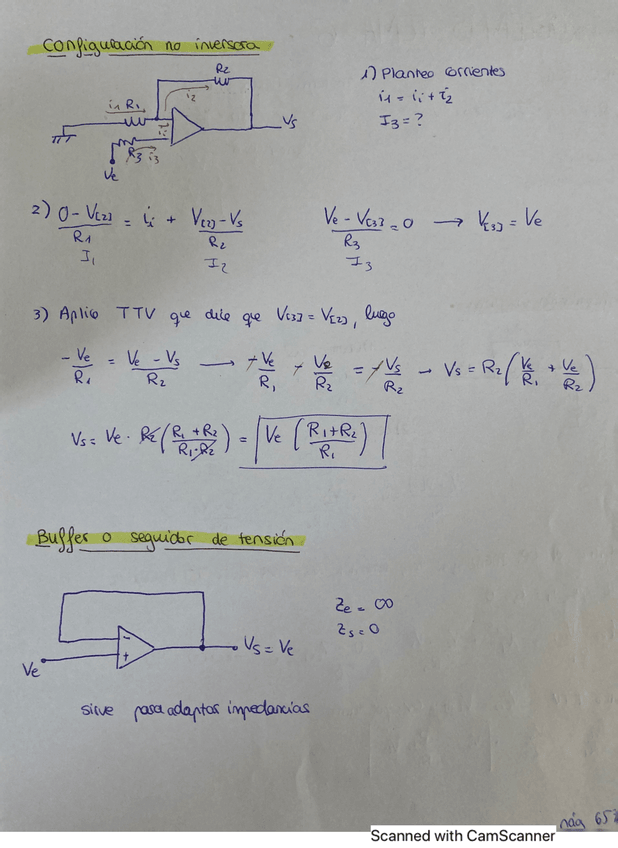 Configuración no inversora
R2
i2
i1 R1
ii
Vs
R3 i3
Ve
1) Planteo corrientes
i1 = ii + i2
I3 = ?
2) (0 - V[2])/R1 = ii + (V[2] - Vs)/R2
I1 I2
(Ve - V[3])/R3 = 0 → V[3] = Ve
I3
3) Aplico TTV que dice que V[3] = V[2], luego
-Ve/R1 = (Ve - Vs)/R2 → -Ve/R1 - Ve/R2 = -Vs/R2 → Vs = R2 (Ve/R1 + Ve/R2)
Vs = Ve · R2 ((R1 + R2)/(R1·R2)) = Ve ((R1+R2)/R1)
Buffer o seguidor de tensión
-
+
Ve
Vs = Ve
Ze = ∞
Zs = 0
sirve para adaptar impedancias
pág 65
Scanned with CamScanner